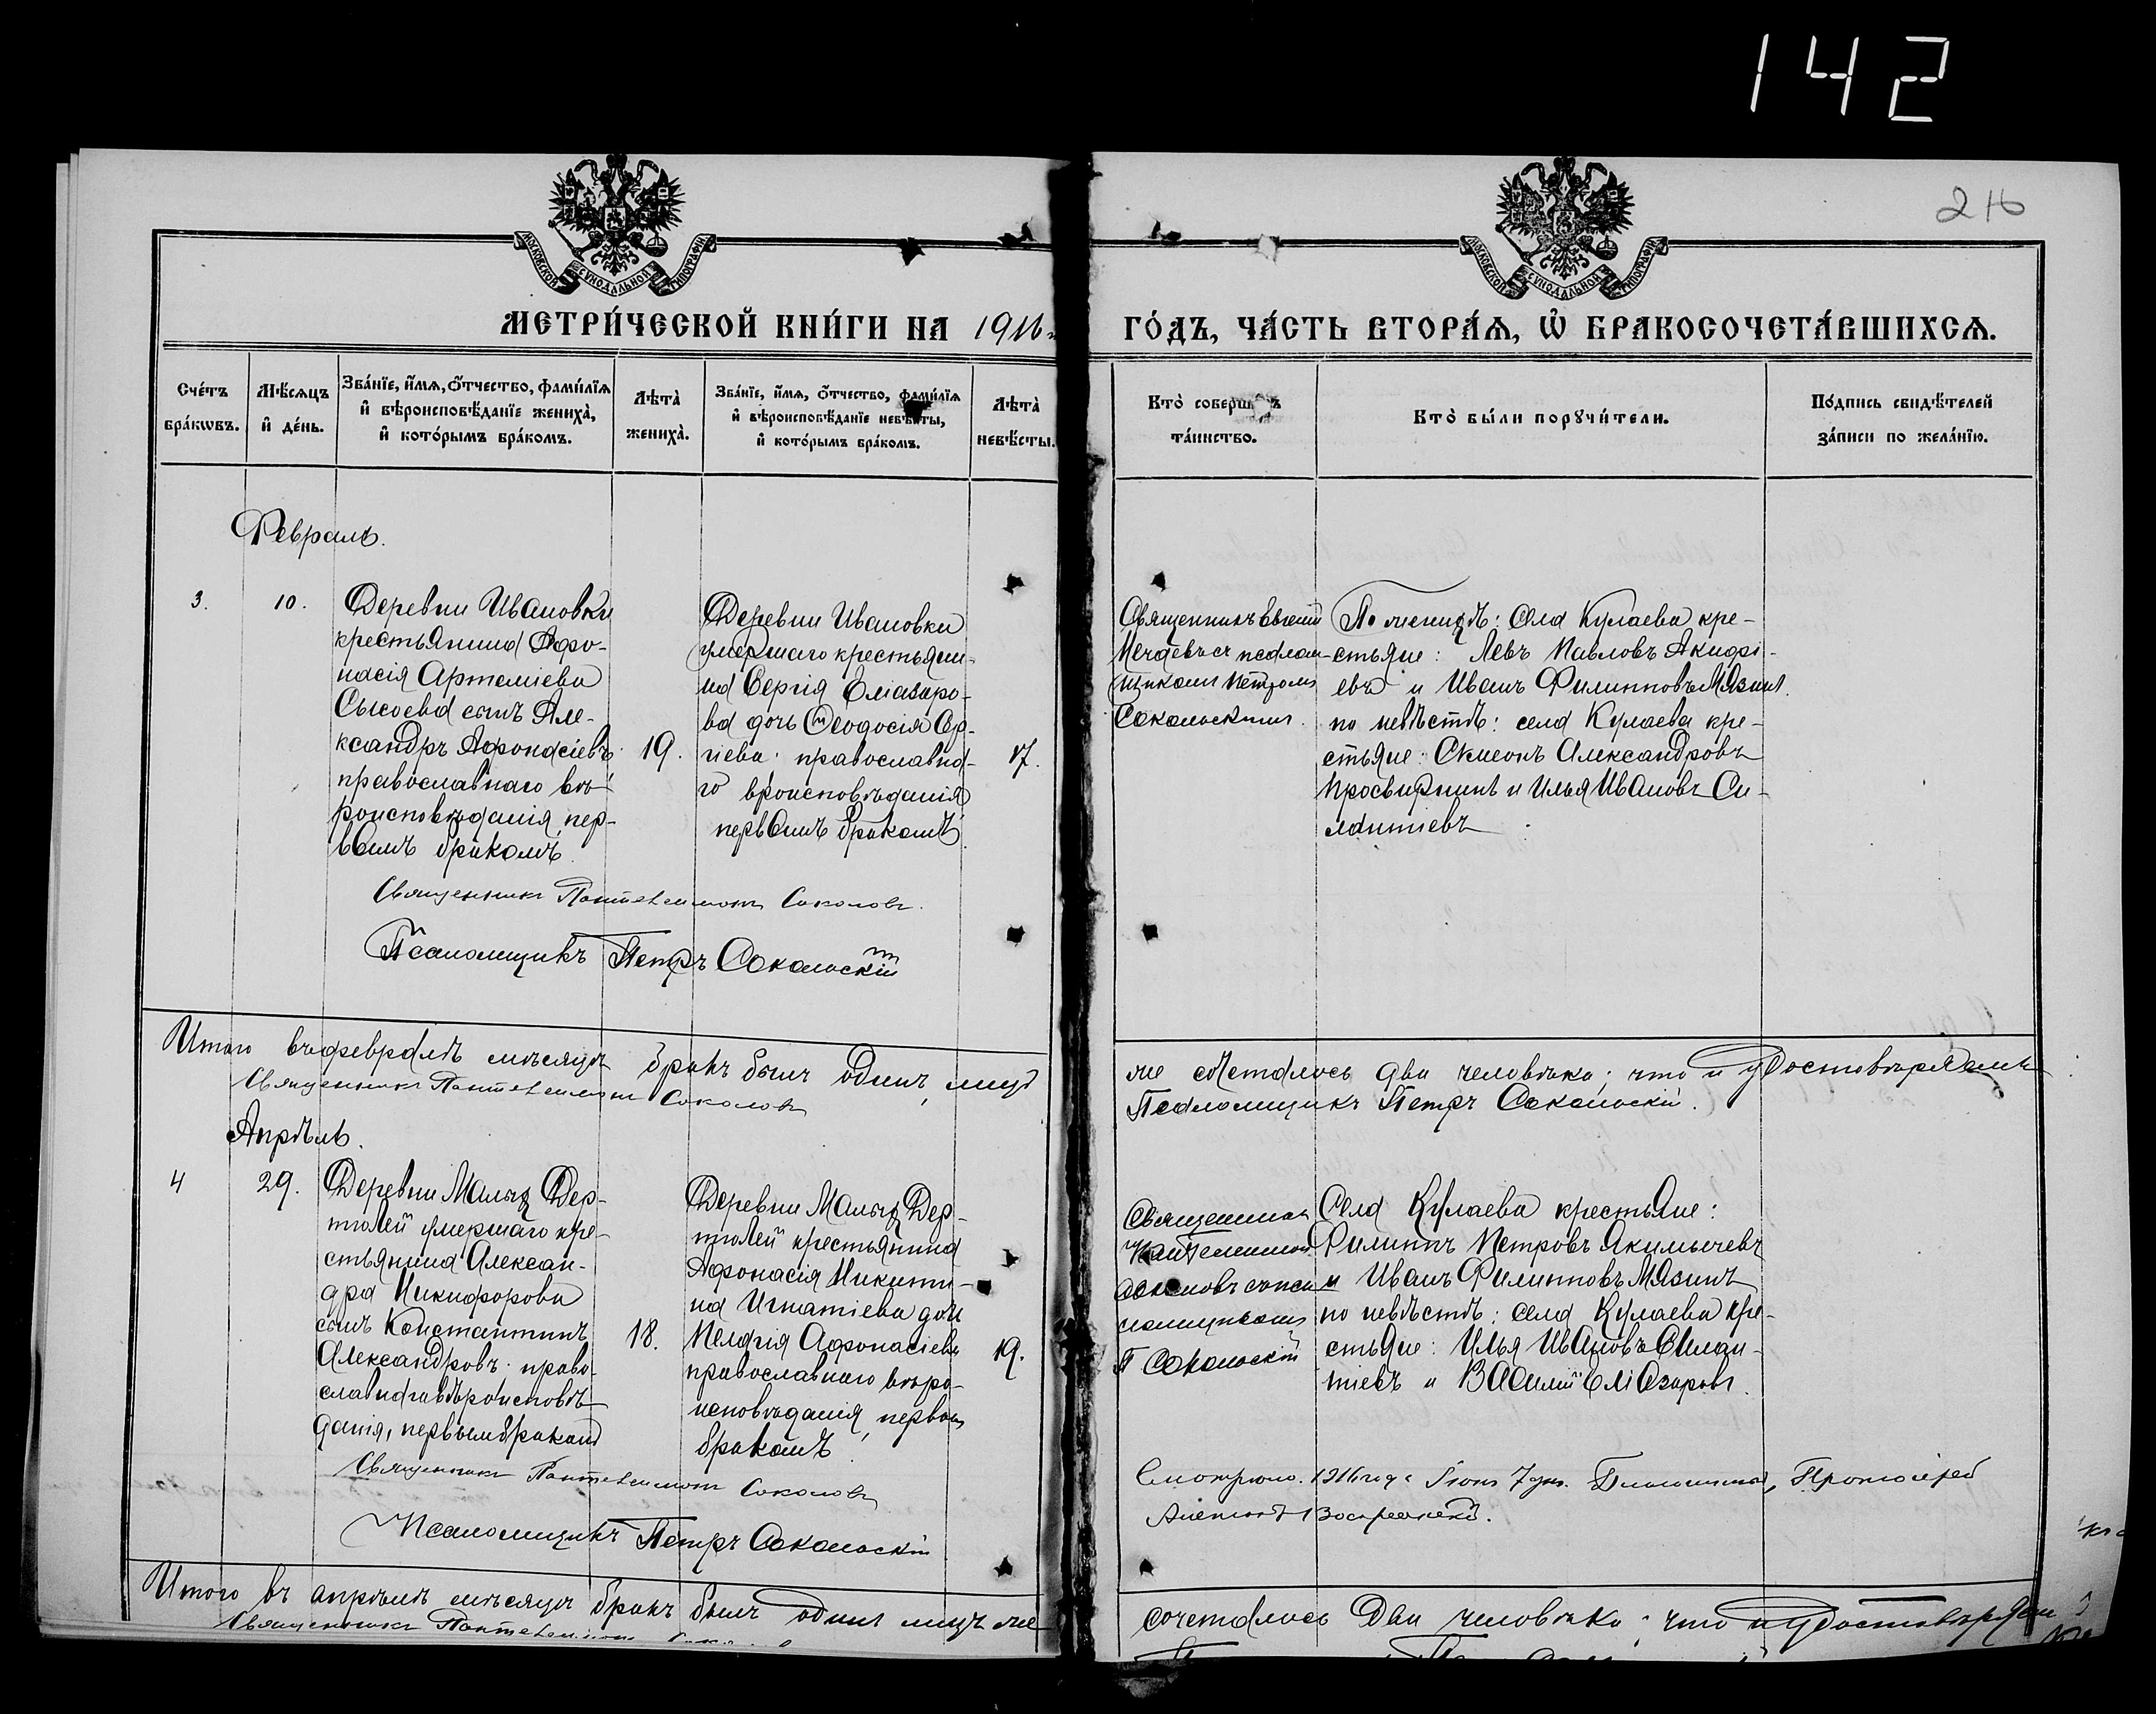 142
216
МОСКОВСКОЙ СѴНОДАЛЬНОЙ ТИПОГРАФІИ
МОСКОВСКОЙ СѴНОДАЛЬНОЙ ТИПОГРАФІИ
МЕТРИ́ЧЕСКОЙ КНИ́ГИ НА 1916
ГО́ДЪ, ЧА́СТЬ ВТОРА́Ѧ, Ѽ БРАКОСОЧЕТА́ВШИХСѦ.
Сче́тъ
бра́кѡвъ.
Мѣ́сѧцъ
и҆ де́нь.
Зва́нїе, и҆́мѧ, ѻ҆́тчество, фами́лїѧ
и҆ вѣроисповѣ́данїе жениха̀,
и҆ кото́рымъ бра́комъ.
Лѣта̀
жениха̀.
Зва́нїе, и҆́мѧ, ѻ҆́тчество, фами́лїѧ
и҆ вѣроисповѣ́данїе невѣ́сты,
и҆ кото́рымъ бра́комъ.
Лѣта̀
невѣ́сты.
Кто̀ соверша́лъ
та́инство.
Кто̀ бы́ли порꙋчи́тели.
По́дпись свидѣ́телей
за́писи по жела́нїю.
Февраль.
3.
10.
Деревни Ивановки
крестьянина Афо-
насія Артеміева
Сысоева сынъ Але-
ксандръ Афонасіевъ
православнаго вѣ-
роисповѣданія, пер-
вымъ бракомъ.
19.
Деревни Ивановки
умершаго крестьяни-
на Сергія Еліазаро-
ва дочь Ѳеодосія Сер-
гіева православна-
го вѣроисповѣданія
первымъ бракомъ.
17.
Священникъ
съ псалом-
щикомъ Петромъ
Сокольскимъ.
По женихѣ: села Кулаева кре-
стьяне: Левъ Павловъ Акифі-
евъ и Иванъ Филипповъ Мязинъ.
по невѣстѣ: села Кулаева кре-
стьяне: Симеонъ Александровъ
Просвирнинъ и Илья Ивановъ Си-
лантіевъ
Священникъ Пантелеимонъ Соколовъ.
Псаломщикъ Петръ Сокольскій
Итого въ февралѣ мѣсяцѣ бракъ былъ одинъ, лицъ
же сочеталось два человѣка; что и удостовѣряемъ
Священникъ Пантелеимонъ Соколовъ
Псаломщикъ Петръ Сокольскій.
Апрѣль.
4
29.
Деревни Малыхъ Дер-
тюлей умершаго кре-
стьянина Алексан-
дра Никифорова
сынъ Константинъ
Александровъ право-
славнаго вѣроисповѣ-
данія, первымъ бракомъ
18.
Деревни Малыхъ Дер-
тюлей крестьянина
Афонасія Никити-
на Игнатіева дочь
Пелагія Афонасіева
православнаго вѣро-
исповѣданія, первымъ
бракомъ.
19.
Священникъ
Пантелеимонъ
Соколовъ съ пса-
ломщикомъ
П Сокольскій
Села Кулаева крестьяне:
Филиппъ Петровъ Якимычевъ
и Иванъ Филипповъ Мязинъ
по невѣстѣ: села Кулаева кре-
стьяне: Илья Ивановъ Силан-
тіевъ и Василій Еліазаровъ.
Священникъ Пантелеимонъ Соколовъ
Псаломщикъ Петръ Сокольскій
Смотрѣно. 1916 года Іюня 7 дня. Благочинный, Протоіерей
Воскресенскій.
Итого въ апрѣлѣ мѣсяцѣ бракъ былъ одинъ лицъ же
сочеталось два человѣка; что и удостовѣряемъ
Священникъ Пантелеимонъ